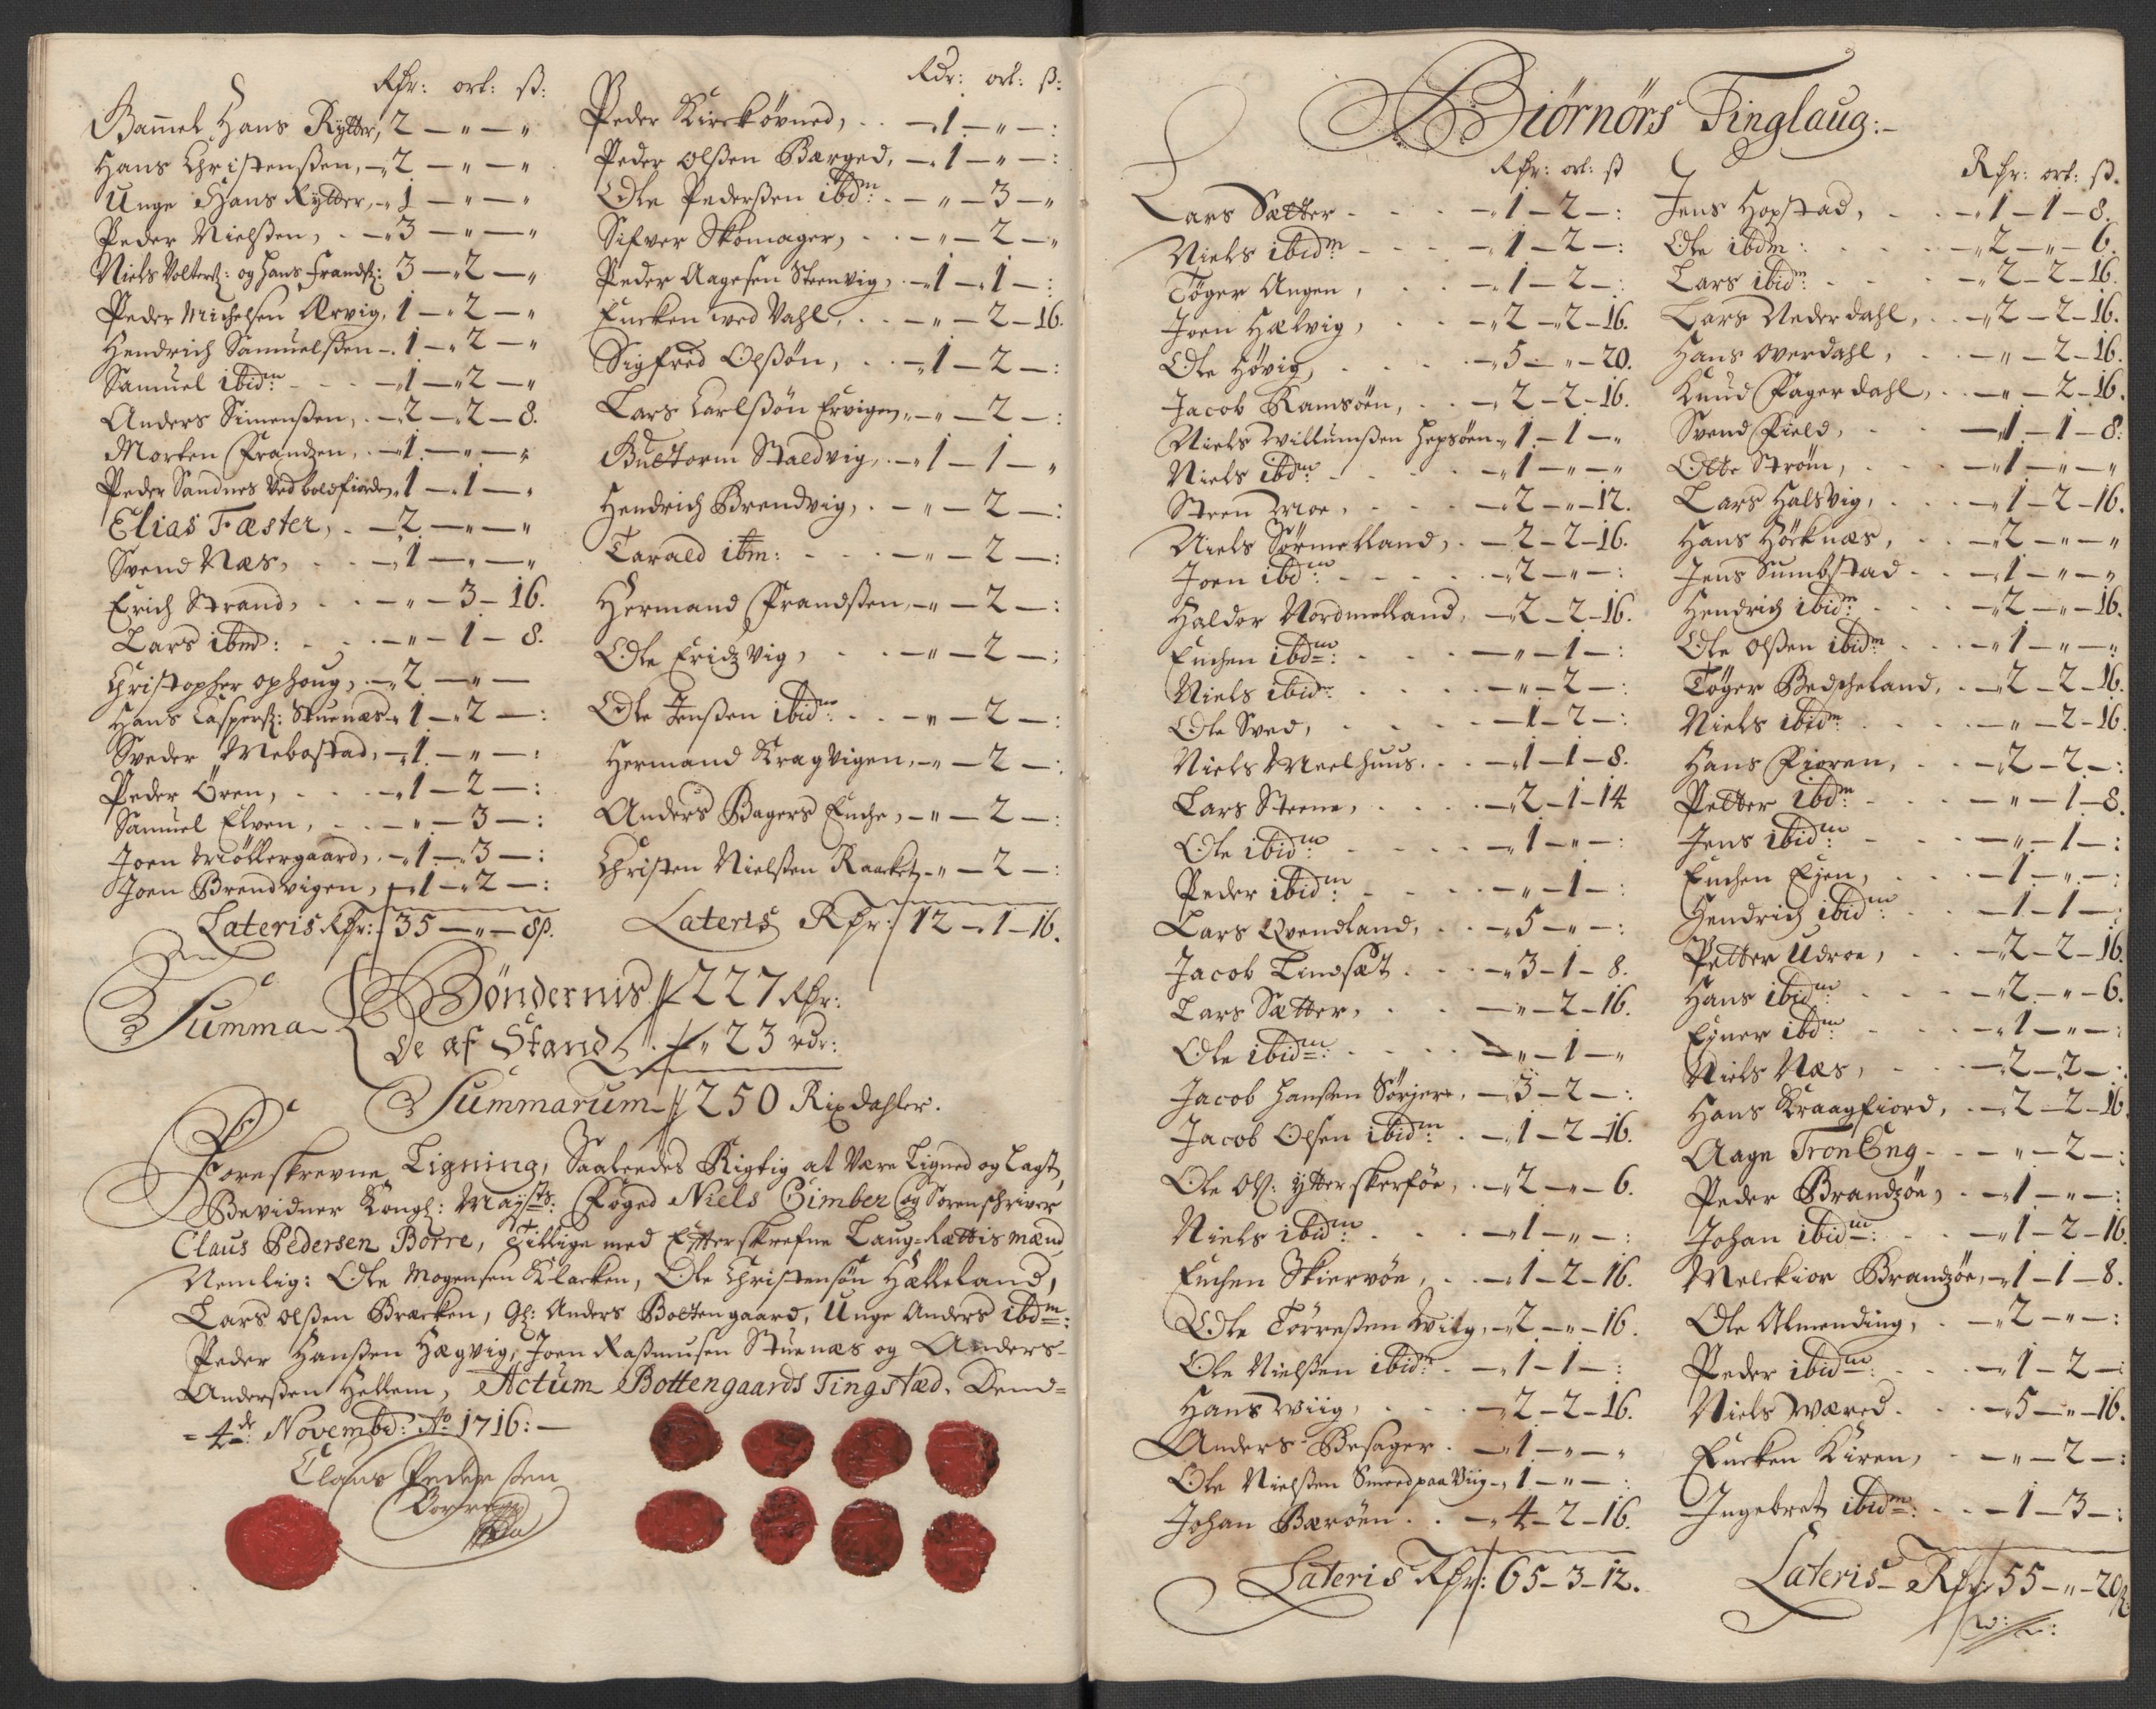 Rdr: ort: ß:
Gammel Hans Rytter, 2 — " — "
Hans Christensßen, — 2 — " — "
Unge Hans Rytter, — 1 — " — "
Peder Nielsßen, . — 3 — " — "
Niels Volterß: og Hans Frandß: 3 — 2 — "
Peder Michelsen Ærvig, 1 — 2 — "
Hendrich Samuelsßen — 1 — 2 — "
Samuel ibidm — 1 — 2 — "
Anders Simensßen, . — 2 — 2 — 8.
Morten Frandzen, . — 1 — " — "
Peder Sandnes Ved boldfiorden, 1 — 1 — "
Elias Fæster, . — 2 — " — "
Svend Næs, . . — 1 — " — "
Erich Strand, . . — " — 3 — 16.
Lars ibm: . . — " — 1 — 8.
Christopher ophoug, — 2 — " —
Hans Casperß: Stuenæs — 1 — 2 — :
Sveder Mebostad, — 1 — " — :
Peder Ören, . . — 1 — 2 — :
Samuel Elven, . . — " — 3 — :
Joen Möllergaard, . — 1 — 3 — :
Joen Brendvigen, — 1 — 2 — :
Lateris Rdr: 35 — " — 8ß.
Rdr: ort: ß:
Peder Kirkövned, . . — 1 — " — :
Peder Olsßen Barged, — 1 — " — :
Ole Pedersßen ibdm . — " — 3 — "
Sifver Skomager, . . — " — 2 — "
Peder Aagesen Steenvig, . — 1 — 1 — :
Encken ved Vahl, . . — " — 2 — 16.
Sigfred Olsßön, . . — 1 — 2 — :
Lars Carlsßön Ervigen, — " — 2 — :
Guttorm Staldvig, . — 1 — 1 — "
Hendrich Brendvig, . — " — 2 — :
Tarald ibm: . . . — " — 2 — :
Hermand Frandsßen, — " — 2 — :
Ole Eridzvig, . . — " — 2 — :
Ole Jensßen ibidm . . — " — 2 — :
Hermand Kragvigen, — " — 2 — :
Anders Bagers Enche, — " — 2 — :
Christen Nielsßen Raacket, — " — 2 — :
Lateris Rdr: 12 — 1 — 16.
Summa
Böndernis 227 Rdr:
De af Stand " 23 rdr:
Summarum 250 Rixdahler.
Foreskrevne Ligning, Saaleedes Rigtig at Være Ligned og Lagt,
Bevidner Kongl: Maysts: Foged Niels Gimber og Sorenschriver
Claus Pedersen Borre, Tillige med Efterskrefne Laug-Rættis mænd
Nemlig: Ole Mogensen Klacken, Ole Christensön Hælleland,
Lars Olsßen Bræcken, Gl: Anders Bottengaard, Unge Anders ibdm:
Peder Hansßen Hægvig, Joen Rasmusen Stuenæs og Anders
Andersßen Hellem, Actum Bottengaards Tingstæd. Dend
4de Novembr: Ao 1716:
Claus Pedersen
Borre
Biörnörs Tinglaug:
Rdr: ort: ß
Lars Sætter . . . — 1 — 2 — :
Niels ibidm . . . — 1 — 2 — :
Töger Angen, . . — 1 — 2 — :
Joen Hælvig, . . — 2 — 2 — 16.
Ole Hövig, . . . — 5 — " — 20.
Jacob Ramsöen, . . — 2 — 2 — 16.
Niels Willumsßen Hepsöen — 1 — 1 — "
Niels ibdm . . . — 1 — " — "
Steen Moe, . . . — 2 — " — 12.
Niels Sörmelland, . — 2 — 2 — 16.
Joen ibdm . . . . — 2 — " — :
Haldor Nordmelland, — 2 — 2 — 16.
Enchen ibdm: . . . — " — 1 — :
Niels ibid: . . . . — " — 2 — :
Ole Sved, . . . . — 1 — 2 — :
Niels Meelhuus. . . — 1 — 1 — 8.
Lars Steene, . . . — 2 — 1 — 14
Ole ibidm . . . . — 1 — " — :
Peder ibidm . . . — " — 1 — :
Lars Qvendland, . . — 5 — " — :
Jacob Lindsæt . . . — 3 — 1 — 8.
Lars Sætter, . . — " — 2 — 16.
Ole ibidm: . . . . — " — 1 — "
Jacob Hansen Sörjer, — 3 — 2 — :
Jacob Olsen ibidm . — 1 — 2 — 16.
Ole Olß: ytterskerföe, . — 2 — " — 6.
Niels ibidm . . . — 1 — " — :
Enchen Skiervöe, . . — 1 — 2 — 16.
Ole Törresßen Wiig, — 2 — " — 16.
Ole Nielsßen ibidm . — 1 — 1 — :
Hans Wiig, . . . — 2 — 2 — 16.
Anders Besager . — 1 — " — "
Ole Nielsßen Smeed paa Viig — 1 — " — :
Johan Bæröen. . . — 4 — 2 — 16.
Lateris Rdr: 65 — 3 — 12.
Rdr: ort: ß.
Jens Hopstad, . . — 1 — 1 — 8.
Ole ibdm: . . . — 2 — " — 6.
Lars ibidm . . . — 2 — 2 — 16.
Lars Nederdahl, . — 2 — 2 — 16.
Hans Overdahl, . . — " — 2 — 16.
Knud Fagerdahl, . . — " — 2 — 16.
Svend Field, . . — 1 — 1 — 8:
Otte Ström, . . . — 1 — " — "
Lars Halsvig, . . — 1 — 2 — 16.
Hans Höcknæs, . . — 2 — " — "
Jens Sumbstad . . — 1 — " — "
Hendrich ibidm . . — 2 — " — 16.
Ole Olsßen ibidm . . — 1 — " — "
Töger Bedscheland, . — 2 — 2 — 16.
Niels ibidm . . . — " — 2 — 16.
Hans Fioren, . . — 2 — 2 — :
Petter ibdm . . . — " — 1 — 8.
Jens ibidm . . . — " — 1 — :
Enchen Eyen, . . . — 1 — " — :
Hendrich ibidm . . — 1 — 1 — :
Petter Udroe, . . — 2 — 2 — 16
Hans ibidm . . . — 2 — " — 6.
Eyner ibdm . . . — 1 — " — :
Niels Næs, . . . — 2 — 2 — :
Hans Kraagfiord, . — 2 — 2 — 16
Aage TronEng . . — " — 2 — :
Peder Brandzöe, . — 1 — " — :
Johan ibidm: . . — 1 — 2 — 16.
Melckior Brandzöe, — 1 — 1 — 8.
Ole Almending, . — 2 — " — :
Peder ibidm . . . — 1 — 2 — :
Niels Wæred . . . — 5 — " — 16.
Encken Kiren, . . — " — 2 — :
Ingebret ibidm: . . — 1 — 3 — :
Lateris Rdr: 55 — " — 20ß